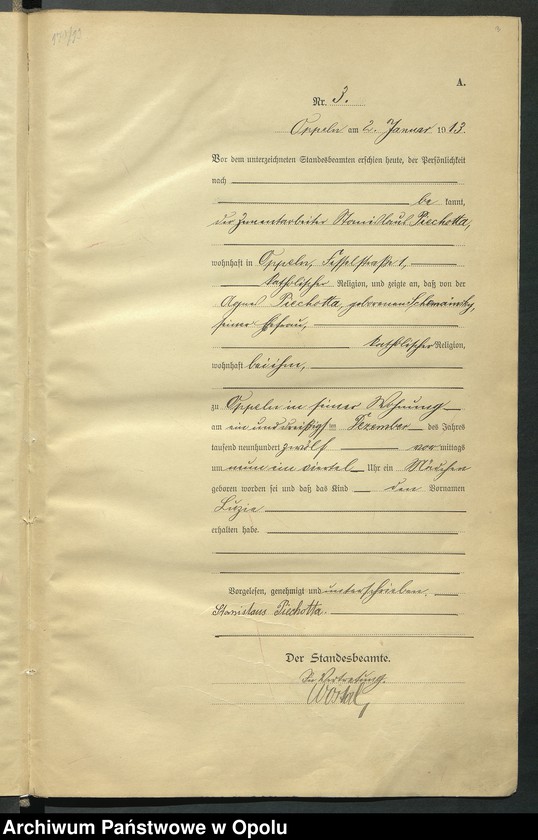 A.
Nr. 3.
Oppeln am 2. Januar 1913.
Vor dem unterzeichneten Standesbeamten erschien heute, der Persönlichkeit
nach
be kannt,
der Zementarbeiter Stanislaus Piechotta,
wohnhaft in Oppeln, Fesselstraße 1,
katholischer Religion, und zeigte an, daß von der
Agnes Piechotta, geborenen
seiner Ehefrau,
katholischer Religion,
wohnhaft bei ihm,
zu Oppeln in seiner Wohnung
am ein und dreißigsten Dezember des Jahres
tausend neunhundert zwölf vor mittags
um neun ein viertel Uhr ein Mädchen
geboren worden sei und daß das Kind den Vornamen
Luzie
erhalten habe.
Vorgelesen, genehmigt und unterschrieben.
Stanislaus Piechotta.
Der Standesbeamte.
In Vertretung.
Archiwum Państwowe w Opolu